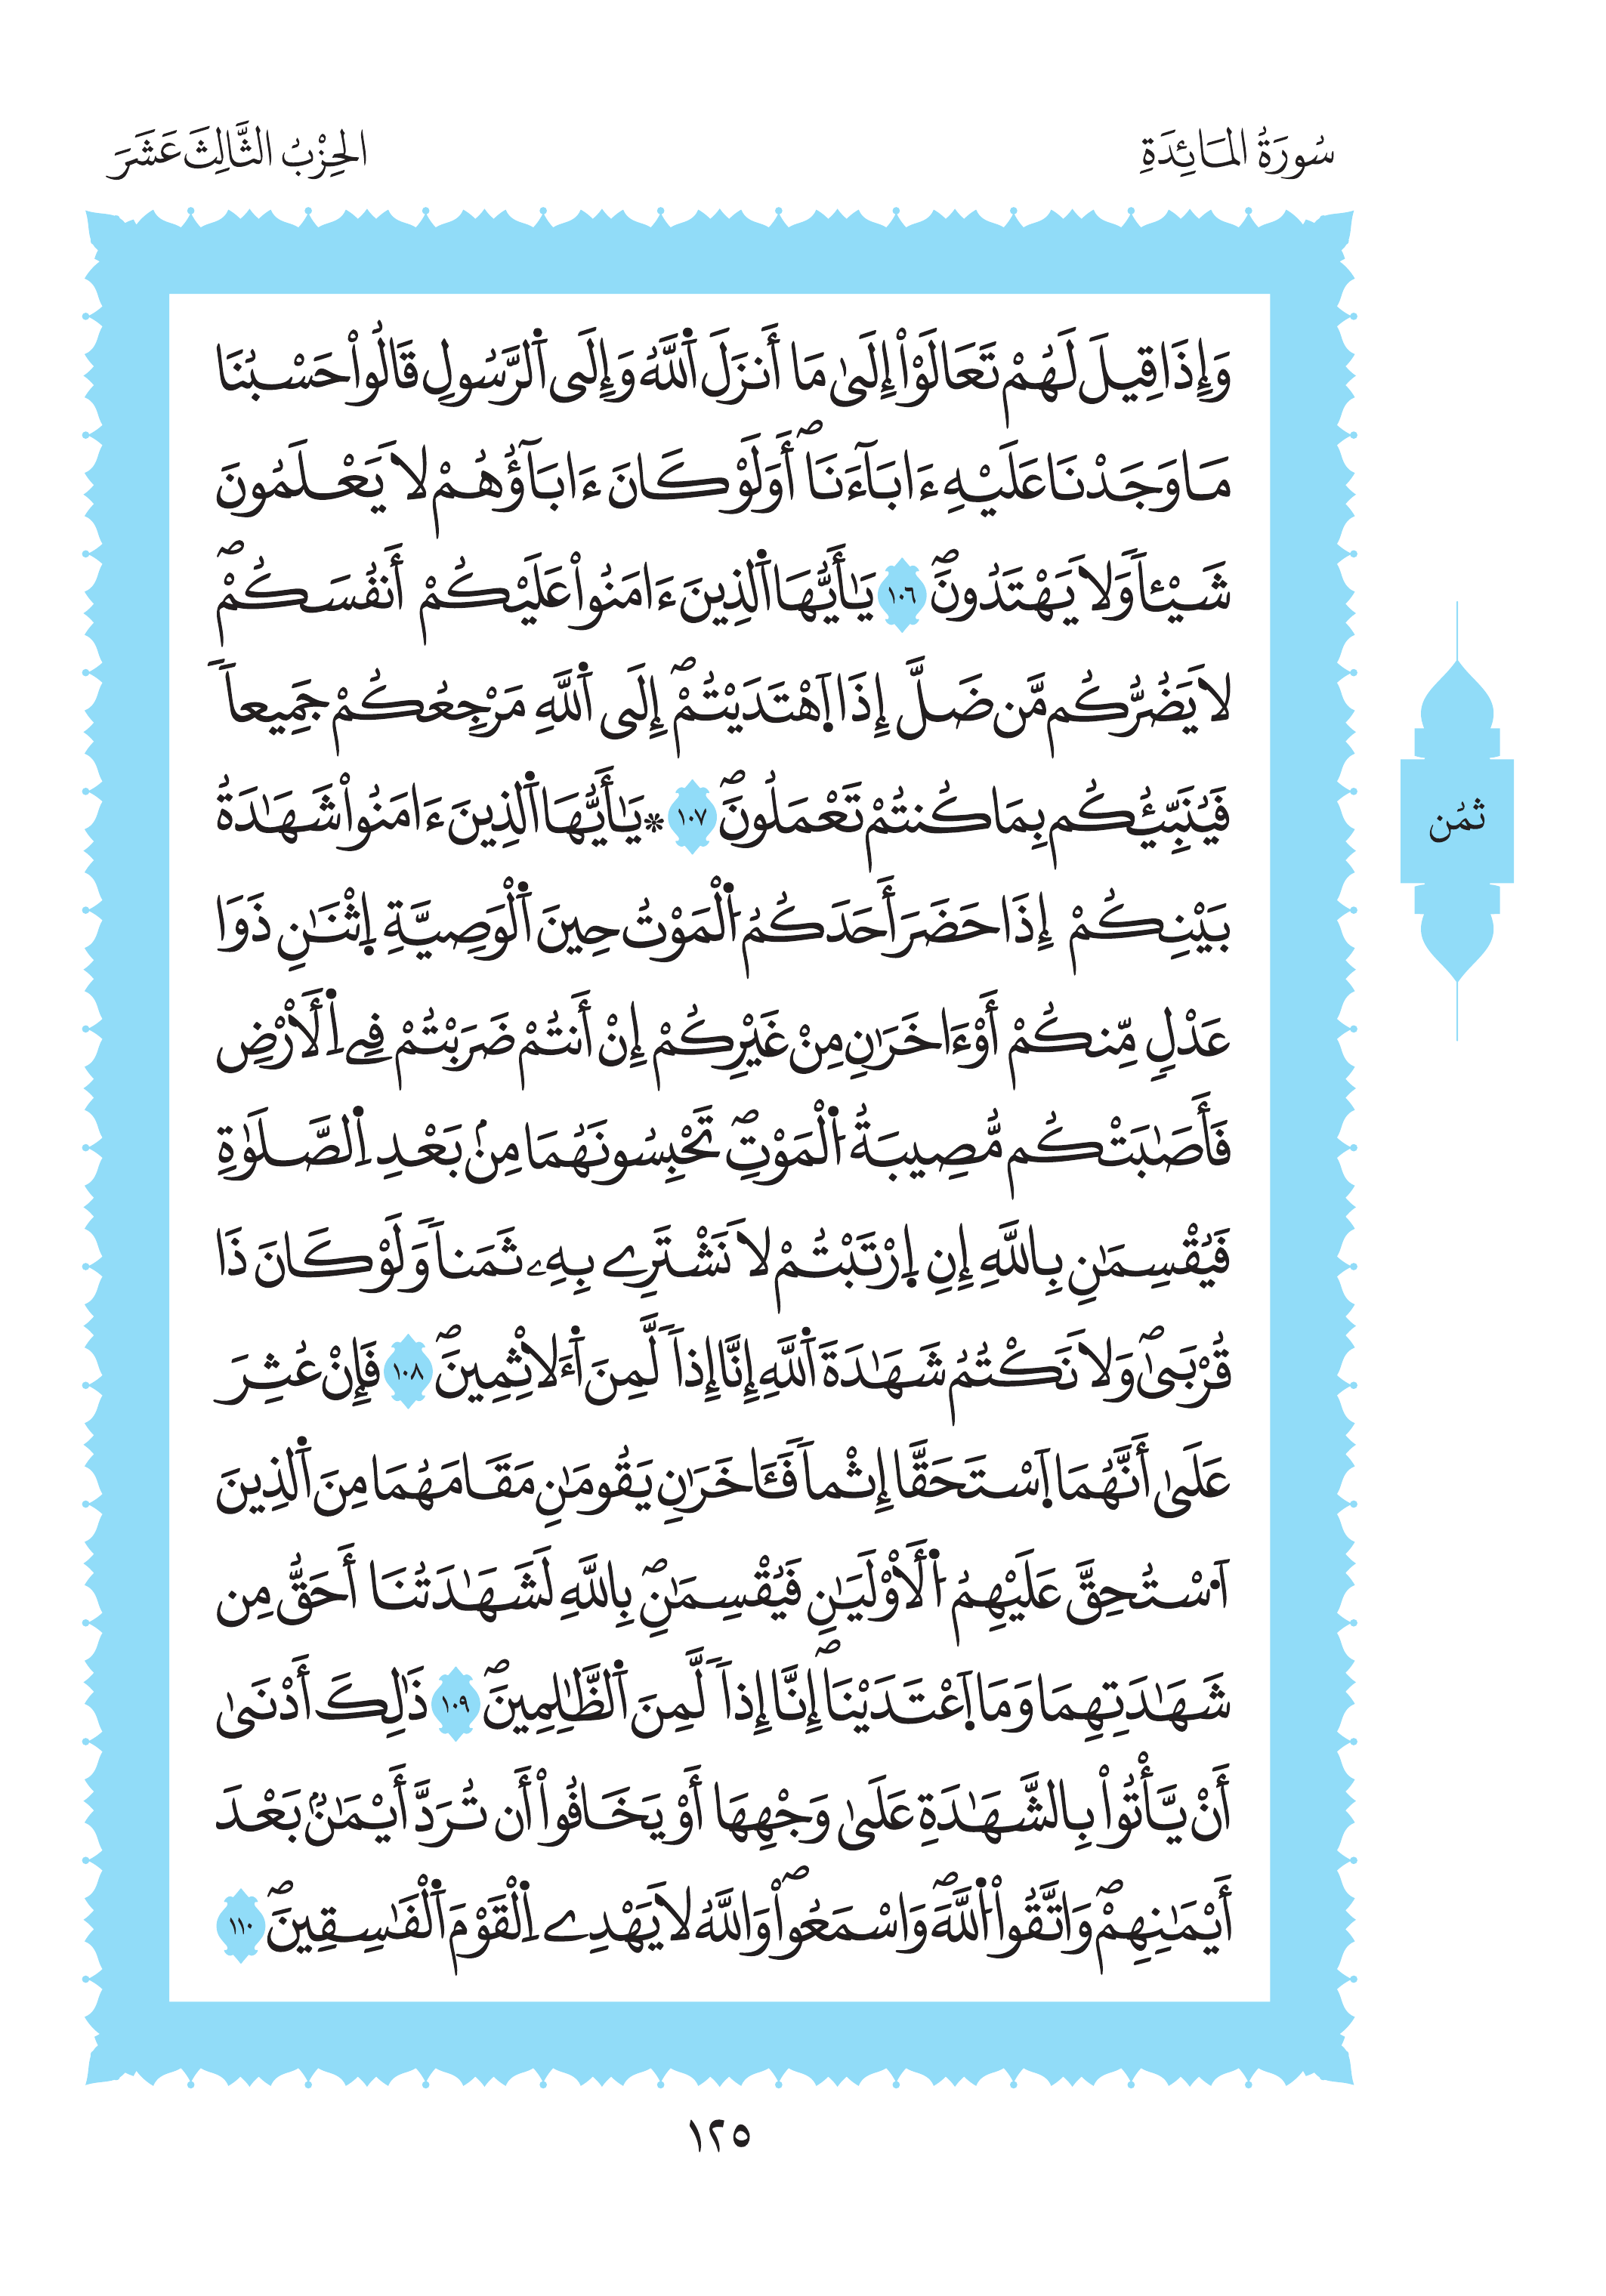 سُورَةُ المَائِدَةِ
الحِزْبُ الثَّالِثَ عَشَرَ
وَإِذَا قِيلَ لَهُمْ تَعَالَوْاْ إِلَىٰ مَا أَنزَلَ اَ۬للَّهُ وَإِلَى اَ۬لرَّسُولِ قَالُواْ حَسْبُنَا
مَا وَجَدْنَا عَلَيْهِ ءَابَآءَنَاۖ أَوَلَوْ كَانَ ءَابَآؤُهُمْ لَا يَعْلَمُونَ
شَيْـٔاٗ وَلَا يَهْتَدُونَۖ ١٠٦ يَٰأَيُّهَا اَ۬لذِينَ ءَامَنُواْ عَلَيْكُمْ أَنفُسَكُمْۖ
لَا يَضُرُّكُم مَّن ضَلَّ إِذَا اَ۪هْتَدَيْتُمْۖ إِلَى اَ۬للَّهِ مَرْجِعُكُمْ جَمِيعاٗ
فَيُنَبِّئُكُم بِمَا كُنتُمْ تَعْمَلُونَۖ ١٠٧ *يَٰأَيُّهَا اَ۬لذِينَ ءَامَنُواْ شَهَٰدَةُ
بَيْنِكُمْ إِذَا حَضَرَ أَحَدَكُمُ اُ۬لْمَوْتُ حِينَ اَ۬لْوَصِيَّةِ اِ۪ثْنَٰنِ ذَوَا
عَدْلٖ مِّنكُمْ أَوْ ءَاخَرَٰنِ مِنْ غَيْرِكُمْ إِنْ أَنتُمْ ضَرَبْتُمْ فِے اِ۬لْأَرْضِ
فَأَصَٰبَتْكُم مُّصِيبَةُ اُ۬لْمَوْتِۖ تَحْبِسُونَهُمَا مِنۢ بَعْدِ اِ۬لصَّلَوٰةِ
فَيُقْسِمَٰنِ بِاللَّهِ إِنِ اِ۪رْتَبْتُمْ لَا نَشْتَرِے بِهِۦ ثَمَناٗ وَلَوْ كَانَ ذَا
قُرْبَىٰۖ وَلَا نَكْتُمُ شَهَٰدَةَ اَ۬للَّهِ إِنَّا إِذاٗ لَّمِنَ اَ۬لَاثِمِينَۖ ١٠٨ فَإِنْ عُثِرَ
عَلَىٰ أَنَّهُمَا اَ۪سْتَحَقَّا إِثْماٗ فَـَٔاخَرَٰنِ يَقُومَٰنِ مَقَامَهُمَا مِنَ اَ۬لذِينَ
اَ۟سْتُحِقَّ عَلَيْهِمُ اُ۬لْأَوْلَيَٰنِ فَيُقْسِمَٰنِۖ بِاللَّهِ لَشَهَٰدَتُنَا أَحَقُّ مِن
شَهَٰدَتِهِمَا وَمَا اَ۪عْتَدَيْنَاۖ إِنَّا إِذاٗ لَّمِنَ اَ۬لظَّٰلِمِينَۖ ١٠٩ ذَٰلِكَ أَدْنَىٰ
أَنْ يَّأْتُواْ بِالشَّهَٰدَةِ عَلَىٰ وَجْهِهَا أَوْ يَخَافُواْ أَن تُرَدَّ أَيْمَٰنُۢ بَعْدَ
أَيْمَٰنِهِمْۖ وَاتَّقُواْ اُ۬للَّهَۖ وَاسْمَعُواْۖ وَاللَّهُ لَا يَهْدِے اِ۬لْقَوْمَ اَ۬لْفَٰسِقِينَۖ ١١٠
ثُمُن
١٢٥